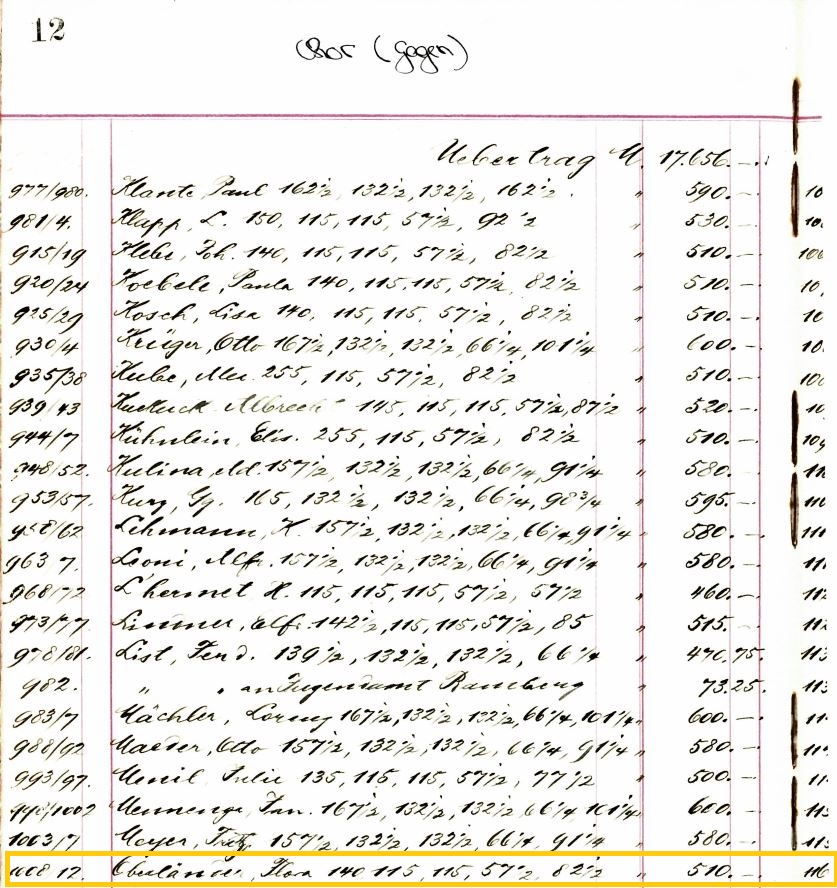 12
Chor (Gagen)
Uebertrag M. 17.656.—
977/980. Klante, Paul 162½, 132½, 132½, 162½. " 590.—
981/4. Klapp, L. 150, 115, 115, 57½, 92½ " 530.—
915/19 Klebe, Joh. 140, 115, 115, 57½, 82½ " 510.—
920/24 Koebele, Paula 140, 115, 115, 57½, 82½ " 510.—
925/29 Kosch, Lisa 140, 115, 115, 57½, 82½ " 510.—
930/4 Krüger, Otto 167½, 132½, 132½, 66¼, 101¼ " 600.—
935/38 Kube, 255, 115, 57½, 82½ " 510.—
939/43 Kuckuck Albrecht 145, 115, 115, 57½, 87½ " 520.—
944/7 Kühnlein, Elis. 255, 115, 57½, 82½ " 510.—
948/52. Kulina, Ad. 157½, 132½, 132½, 66¼, 91¼ " 580.—
953/57. Kurz, Gg. 165, 132½, 132½, 66¼, 98¾ " 595.—
958/62 Lehmann, K. 157½, 132½, 132½, 66¼, 91¼ " 580.—
963 7. Leoni, Alfr. 157½, 132½, 132½, 66¼, 91¼ " 580.—
968/72 L'hermet H. 115, 115, 115, 57½, 57½ " 460.—
973/77. Limmer, Elf. 142½, 115, 115, 57½, 85 " 515.—
978/81. List, Ferd. 139½, 132½, 132½, 66¼ " 470.75.
982. " " an Jugendamt Bamberg " 73.25.
983/7 Mächler, 167½, 132½, 132½, 66¼, 101¼ " 600.—
988/92 Maeser, Otto 157½, 132½, 132½, 66¼, 91¼ " 580.—
993/97. Menil, Julie 135, 115, 115, 57½, 77½ " 500.—
998/1002 Mennenga, Jan. 167½, 132½, 132½, 66¼ 101¼ " 600.—
1003/7 Meyer, Fritz 157½, 132½, 132½, 66¼, 91¼ " 580.—
1008/12. Oberländer, Flora 140 115, 115, 57½, 82½ " 510.—